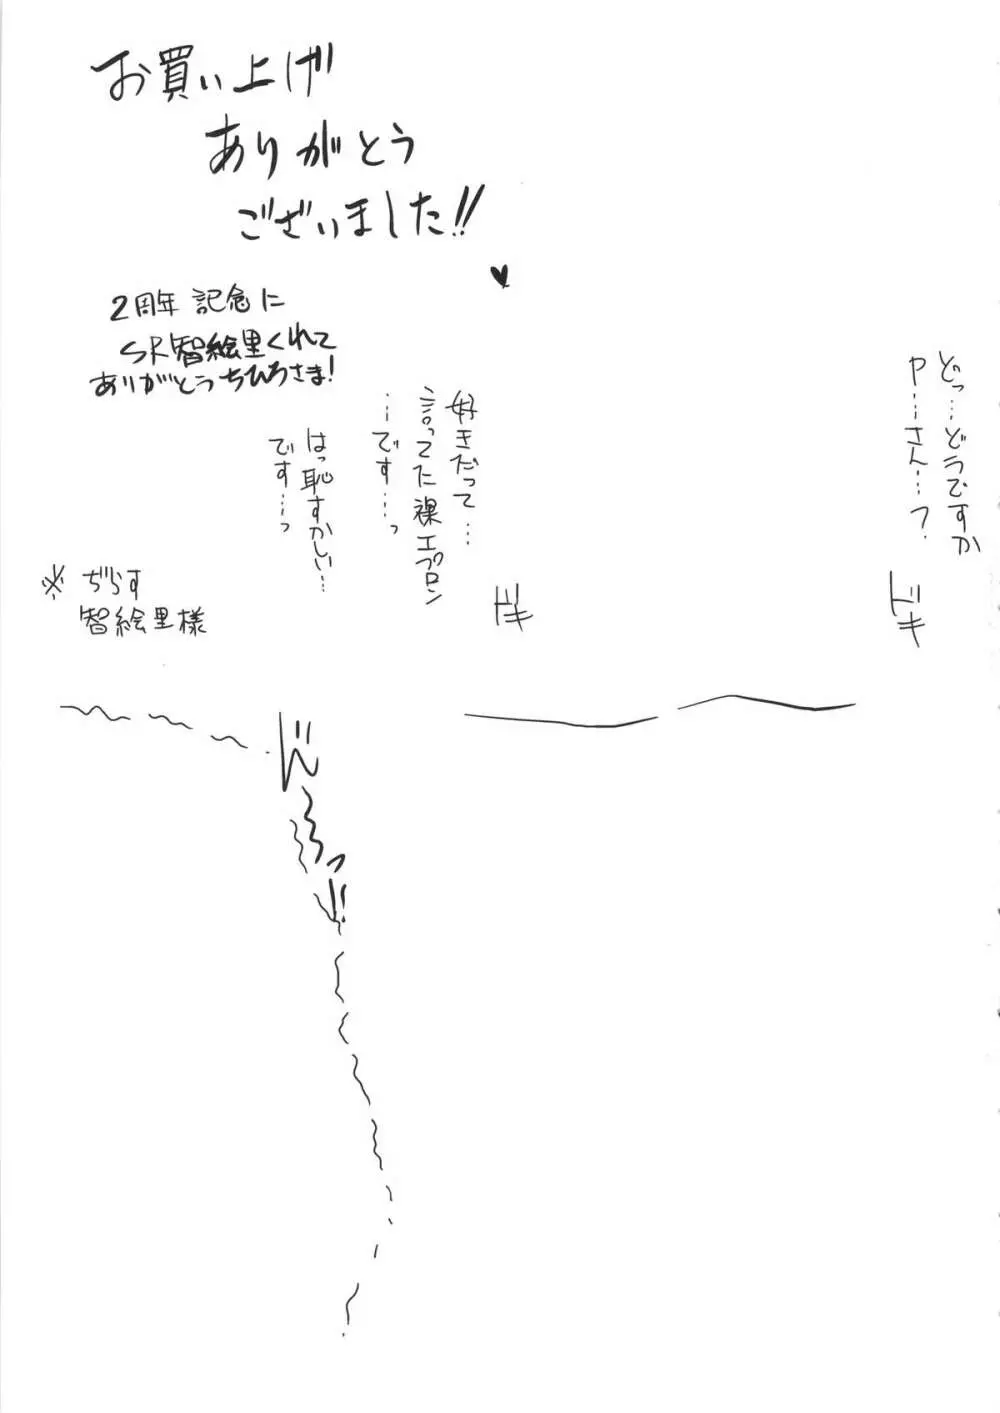 お買い上げ
ありがとう
ございました!!
2周年 記念に
SR智絵里くれて
ありがとうちひろさま!
どっ…どうですか
P…さん…?
好きだって…
言ってた裸エプロン
…です…っ
はっ恥ずかしい…
です…っ
ドキ
ドキ
※
智絵里様
ど
っ
!!